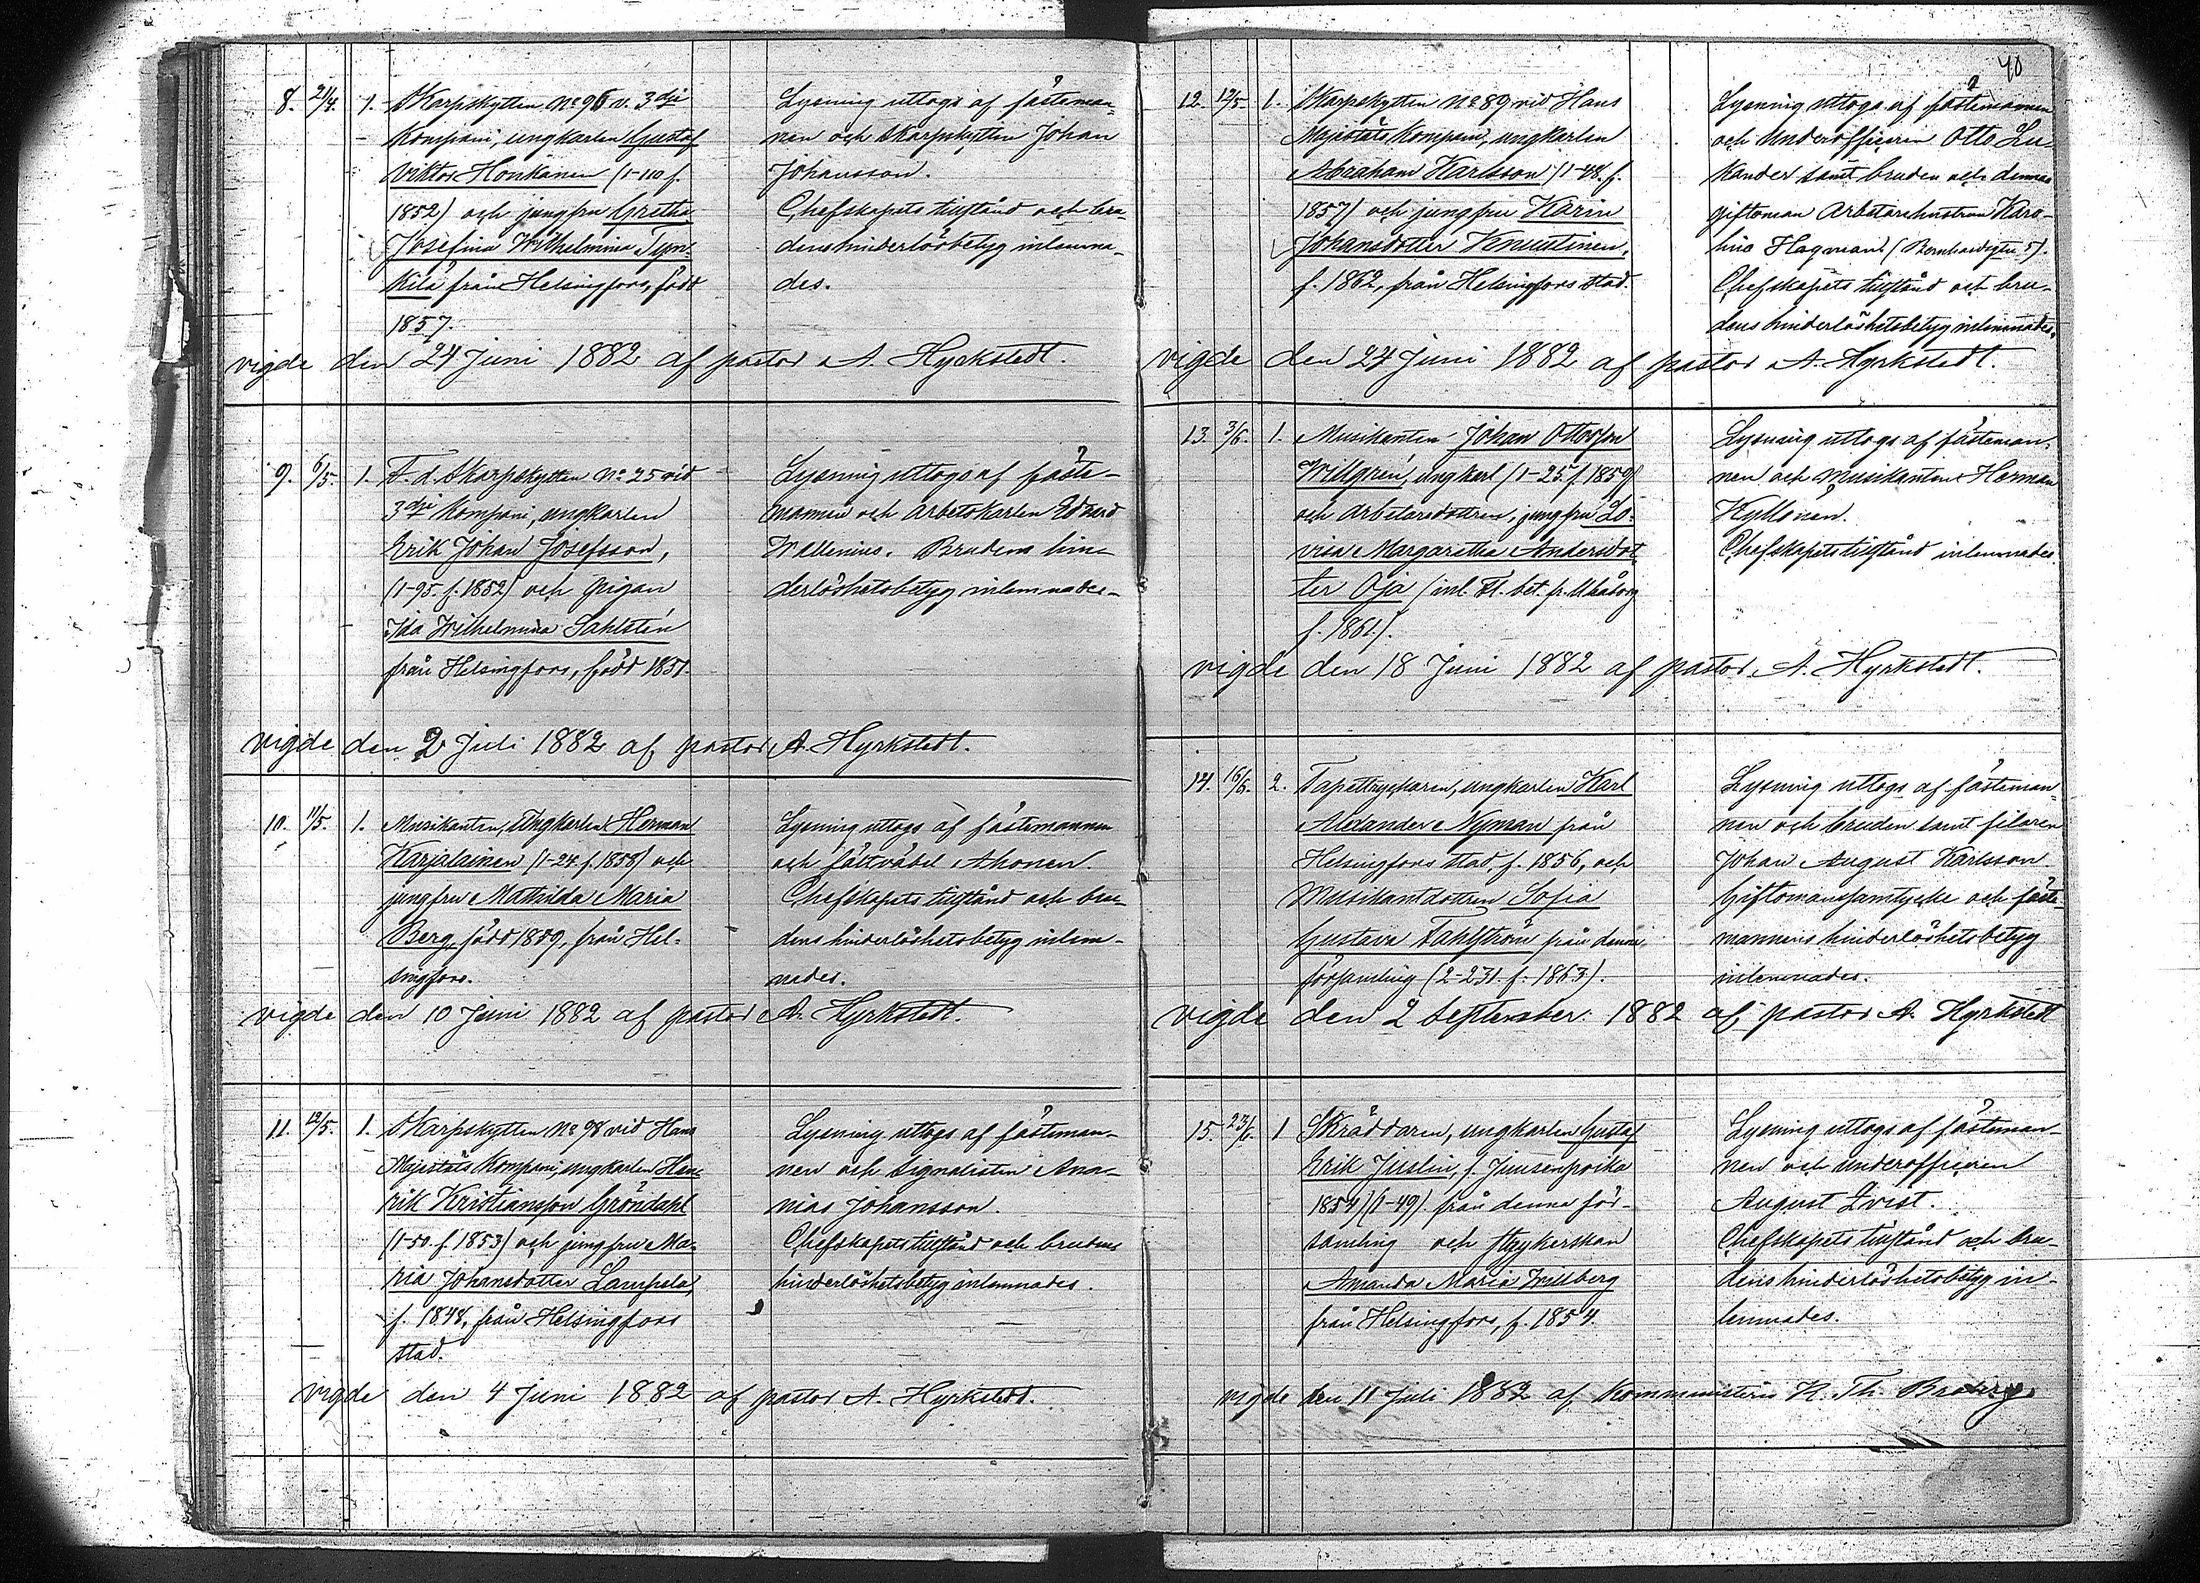 8. 21/4. 1. Skarpskytten No 96 v. 3dje
Kompani, ungkarlen Gustaf
Viktor Honkanen (1-110 f.
1852) och jungfru Gretha
Josefina Wilhelmina Tyn-
kilä från Helsingfors, född
1857.
Lysning uttogs af fästeman-
nen och skarpskytten Johan
Johansson.
Chefskapets tillstånd och bru-
dens hinderlösbetyg inlemna-
des.
vigde den 24 Juni 1882 af pastor A. Hyrkstedt.
9. 6/5. 1. F. d. Skarpskytten No 25 vid
3dje Kompani, ungkarlen
Erik Johan Josefsson,
(1-95. f. 1852) och pigan
Ida Wilhelmina Sahlstén
från Helsingfors, född 1851.
Lysning uttogs af fäste-
mannen och Arbetskarlen Edvard
Wallenius. Brudens hin-
derlöshetsbetyg inlemnades.
vigde den 2 Juli 1882 af pastor A. Hyrkstedt.
10. 11/5. 1. Musikanten, Ungkarlen Herman
Karjalainen (1-24. f. 1858) och
jungfru Mathilda Maria
Berg, född 1859, från Hel-
singfors.
Lysning uttogs af fästemannen
och fältväbel Ahonen.
Chefskapets tillstånd och bru-
dens hinderlöshetsbetyg inlem-
nades.
vigde den 10 Juni 1882 af pastor A. Hyrkstedt.
11. 12/5. 1. Skarpskytten No 98 vid Hans
Majestäts Kompani, ungkarlen Hen-
rik Kristiansson Gröndahl
(1-50. f. 1853) och jungfru Ma-
ria Johansdotter Lampela,
f. 1848, från Helsingfors
stad.
Lysning uttogs af fästeman-
nen och signalisten Ana-
nias Johansson.
Chefskapets tillstånd och brudens
hinderlöshetsbetyg inlemnades.
vigde den 4 Juni 1882 af pastor A. Hyrkstedt.
40
12. 12/5. 1. Skarpskytten No 89 vid Hans
Majestäts Kompani, ungkarlen
Abraham Karlsson (1-48. f.
1857) och jungfru Karin
Johansdotter Knuutinen,
f. 1862, från Helsingfors stad.
Lysning uttogs af fästemannen
och Underofficeren Otto Lu-
kander samt bruden och dennas
giftoman Arbetarehustrun Karo-
lina Hagman (Bernhardsgtn 5).
Chefskapets tillstånd och bru-
dens hinderlöshetsbetyg inlemnades.
vigde den 24 Juni 1882 af pastor A. Hyrkstedt.
13. 3/6. 1. Musikanten Johan Ottosson
Willgren, ungkarl (1-25. f. 1859)
och Arbetaredottren, jungfru Lo-
visa Margaretha Andersdot-
ter Oja (inl. fl. bet. fr. Uleåborg
f. 1861).
Lysning uttogs af fästeman-
nen och Musikanten Herman
Kyllönen.
Chefskapets tillstånd inlemnades.
vigde den 18 Juni 1882 af pastor A. Hyrkstedt.
14. 16/6. 2. Tapettryckaren, ungkarlen Karl
Alexander Nyman från
Helsingfors stad, f. 1856, och
Musikantdottren Sofia
Gustava Fahlström från denna
församling (2-231. f. 1863).
Lysning uttogs af fästeman-
nen och bruden samt filaren
Johan August Karlsson
Giftomanssamtycke och fäste-
mannens hinderlöshetsbetyg
inlemnades.
vigde den 2 September 1882 af pastor A. Hyrkstedt
15. 23/6. 1 Skräddaren, ungkarlen Gustaf
Erik Juslin, f.
1854) (1-49). från denna för-
samling och strykerskan
Amanda Maria Willberg
från Helsingfors, f. 1854.
Lysning uttogs af fästeman-
nen och underofficeren
August Qvist.
Chefskapets tillstånd och bru-
dens hinderlöshetsbetyg in-
lemnades.
vigde den 11 Juli 1882 af Kommunistern K. Th. Broberg.